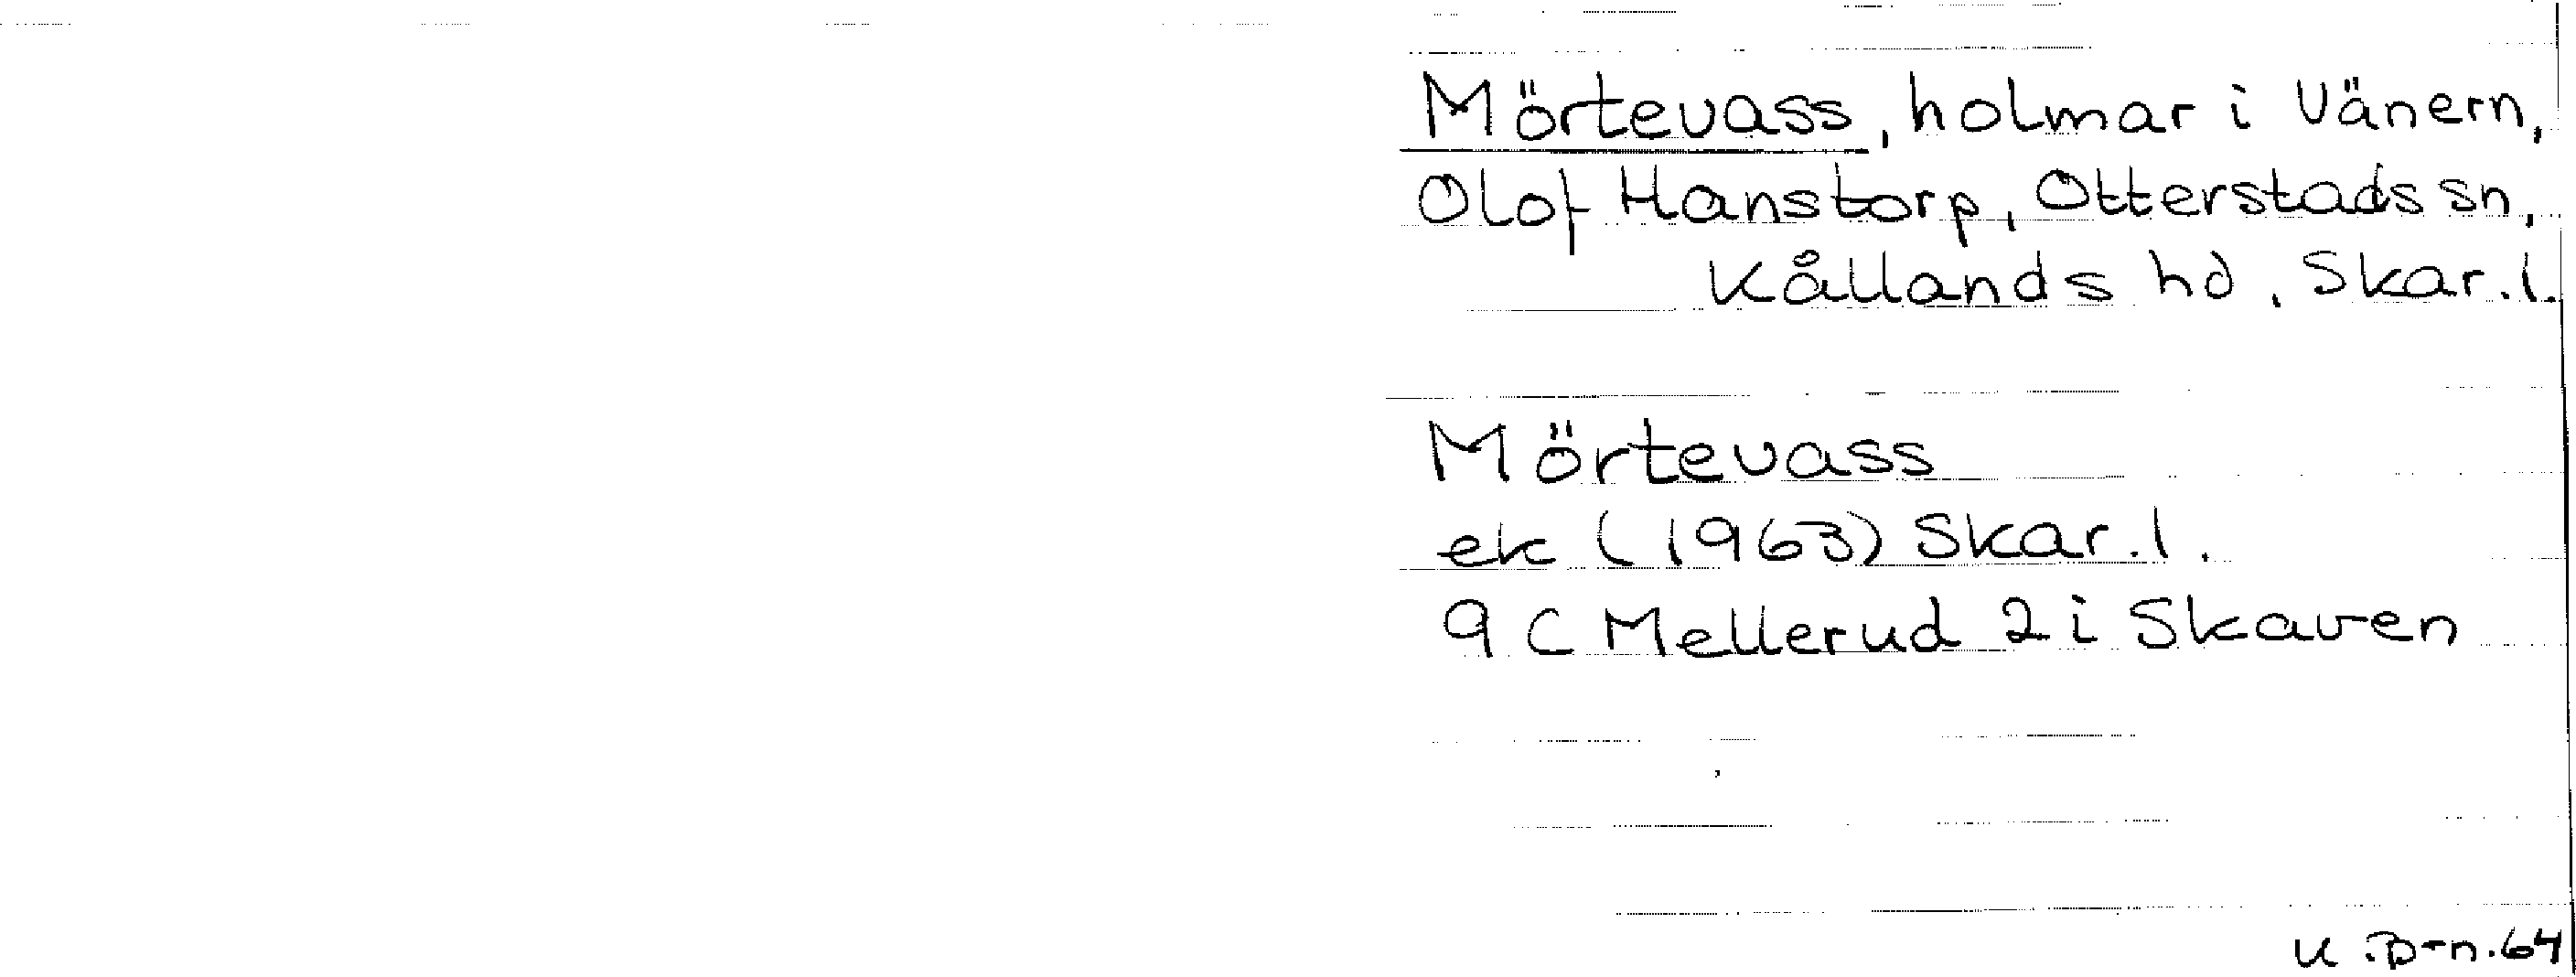 Mörtevass, holmar i Vänern,
Olof Hanstorp, Otterstads sn,
Kållands hd, Skar. l.
Mörtevass
ek (1963) Skar. l.
9 C Mellerud 2 i Skaven
K. B-n. 64